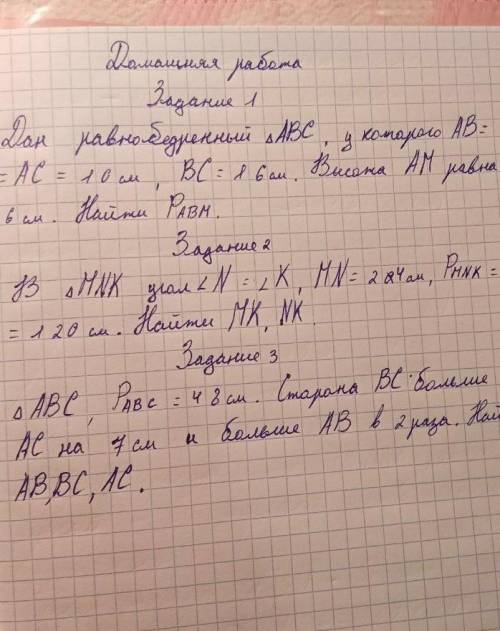 Домашняя работа
Задание 1
Дан равнобедренный △ABC, у которого AB=
= AC = 10 см, BC = 16 см. Высота AM равна
6 см. Найти PABM.
Задание 2
В △MNK угол ∠N = ∠K, MN = см, PMNK =
= 120 см. Найти MK, NK.
Задание 3
△ABC, PABC = 48 см. Сторона BC больше
AC на 7 см и больше AB в 2 раза. Най
AB, BC, AC.